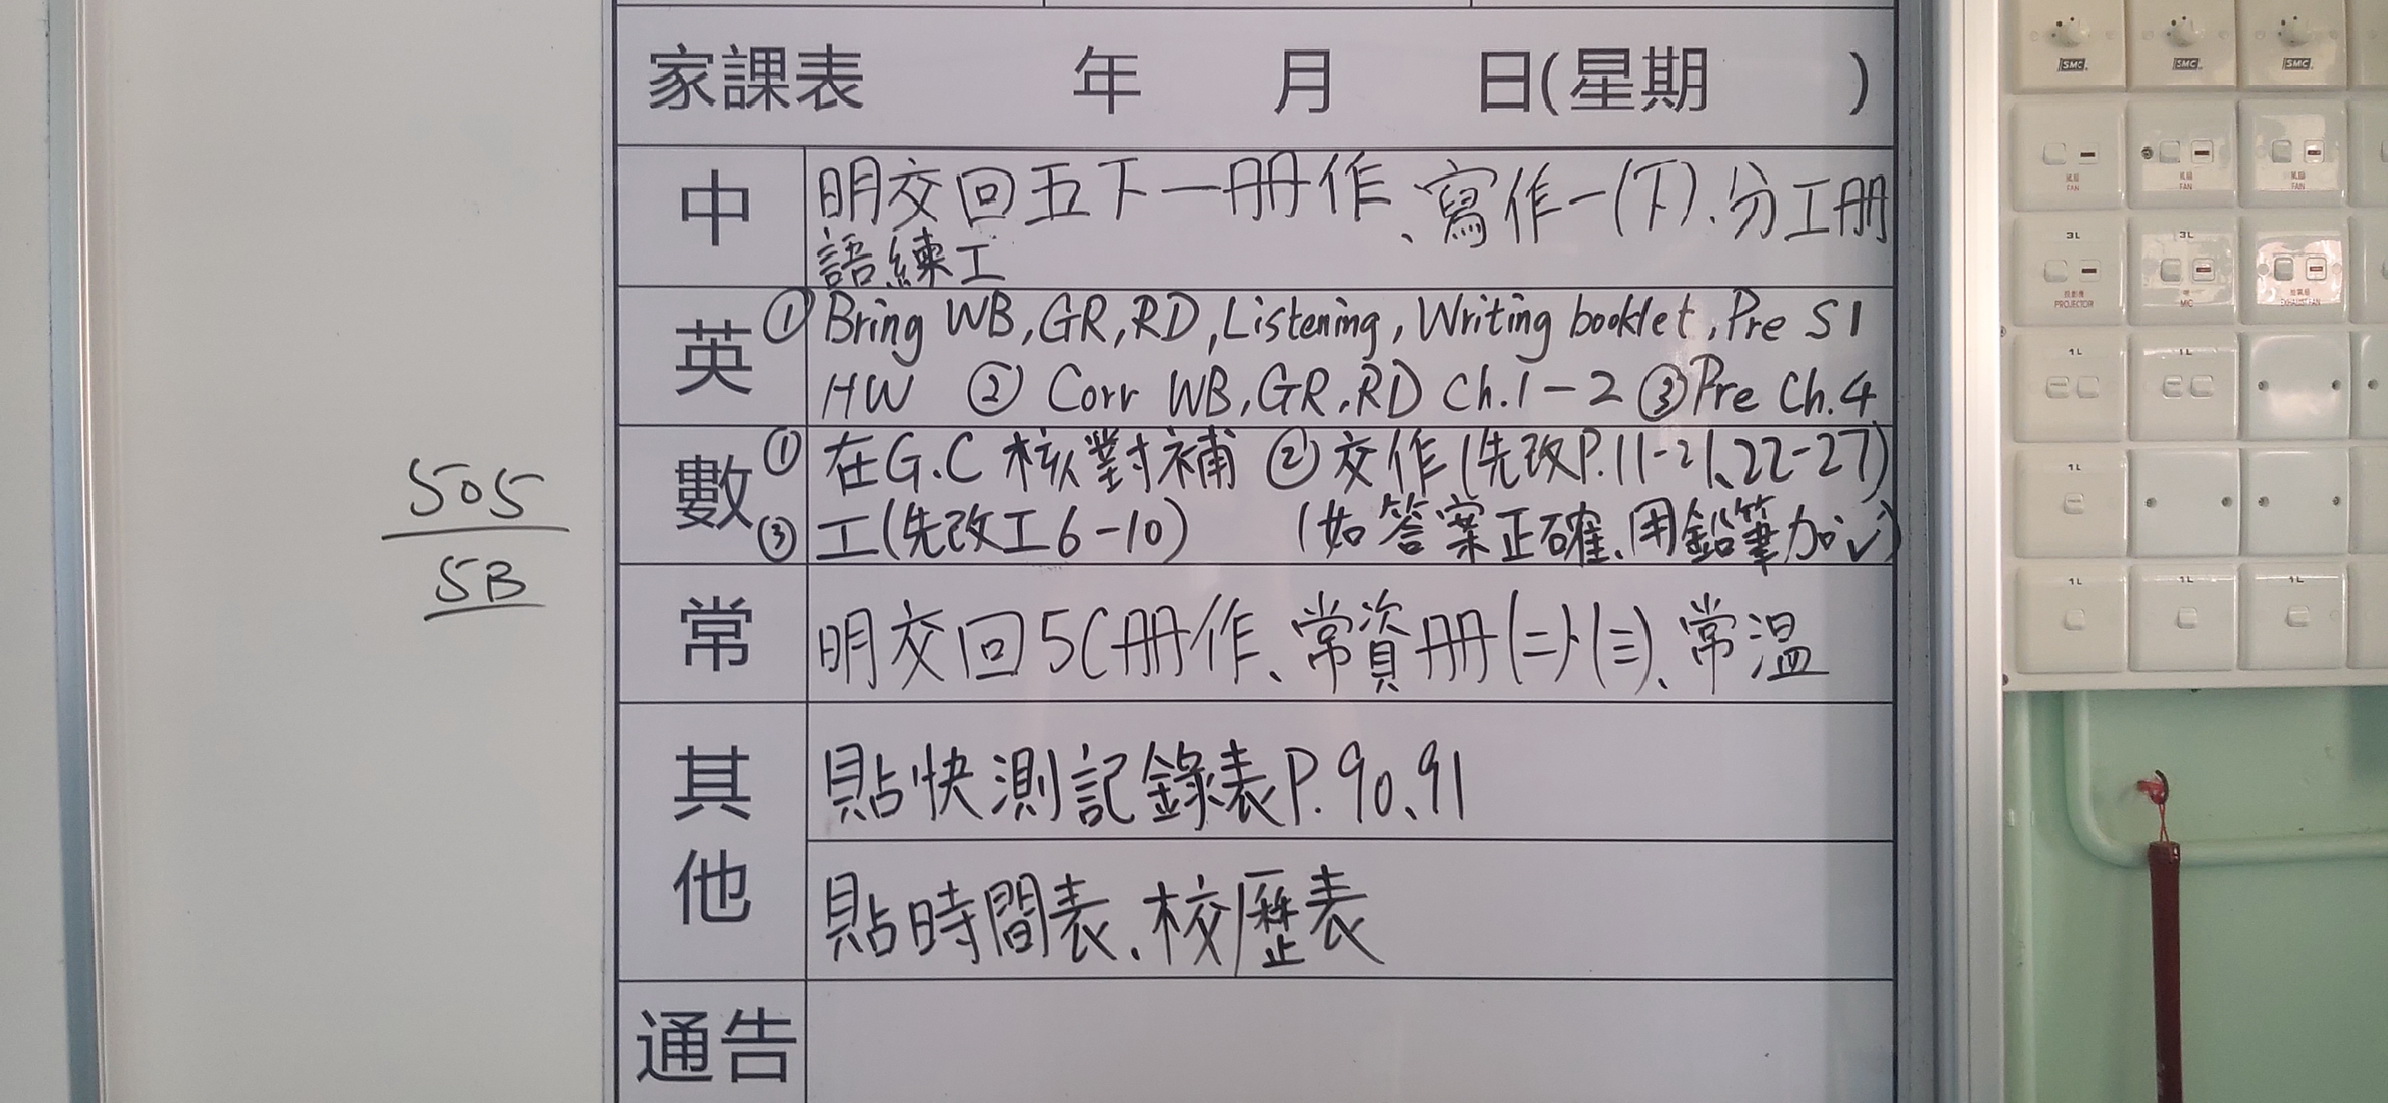 家課表 年 月 日(星期 )
中
明交回五下一册作、寫作一(下)、分工册
語練工
英
① Bring WB, GR, RD, Listening, Writing booklet, Pre S1
HW ② Corr WB, GR, RD Ch.1-2 ③ Pre Ch.4
數
① 在G.C核對補 ② 交作(先改P.11-21、22-27)
③ 工(先改工6-10) (如答案正確、用鉛筆加✓)
常
明交回5C册作、常資册(二)、(三)、常溫
其他
貼快測記錄表P.90、91
貼時間表、校歷表
通告
505
5B
SMC SMC SMC
風扇 FAN
風扇 FAN
風扇 FAN
3L
3L
投影機 PROJECTOR
咪 MIC
抽氣扇 EXHAUST FAN
1L
1L
1L
1L
1L
1L